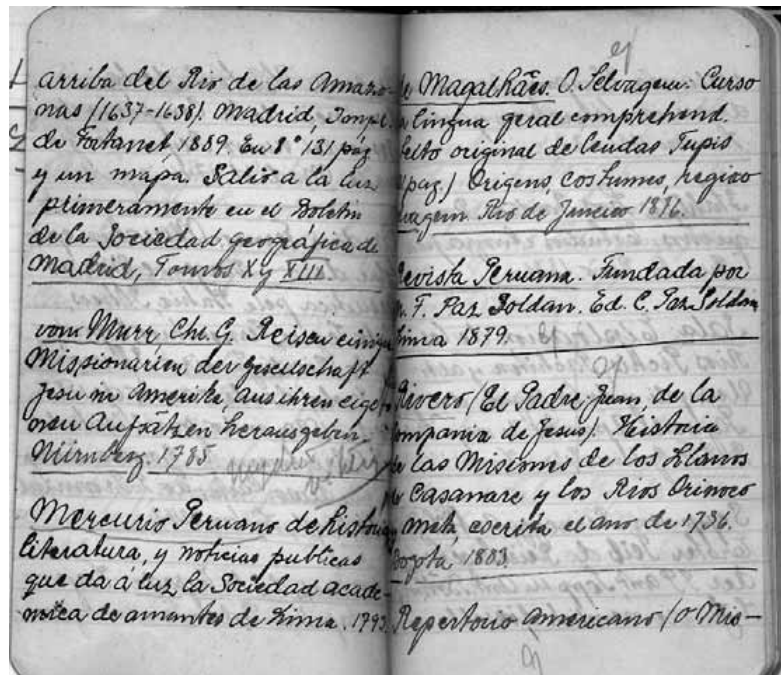 arriba del Rio de las Amazo-
nas (1637-1638). Madrid, Impt.
de Fortanet 1889. En 8° 131 pág
y un mapa. Salió a la luz
primeramente en el Boletin
de la Sociedad geográfica de
Madrid, Tomos X y XIII.
von Murr, Chr. G. Reisen einige
Missionarien der Gesellschaft
Jesu in Amerika, aus ihren eige-
nen Aufsätzen herausgeben.
Nürnberg. 1785.
Mercurio Peruano de historia
literatura, y noticias publicas
que da á luz la Sociedad acade-
mica de amantes de Lima. 1793
de Magalhães. O Selvagem: Curso
lingua geral comprehend.
texto original de Lendas Tupis
pag.) Origens, costumes, regiao
selvagem. Rio de Janeiro 1876.
Revista Peruana. Fundada por
M. F. Paz Soldan. Ed. C. Paz Soldan
Lima 1879.
Rivero (El Padre Juan, de la
Compania de Jesus). Historia
de las Misiones de los Llanos
de Casanare y los Rios Orinoco
Meta, escrita el ano de 1736.
Bogota 1883.
Repertorio Americano (O Mis-